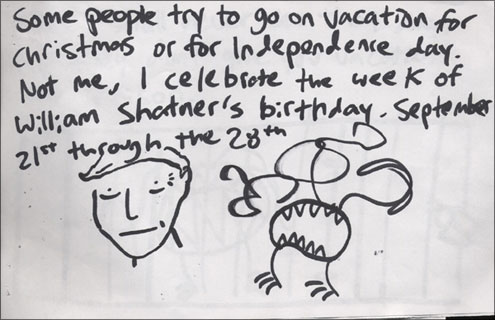 Some people try to go on vacation for
Christmas or for Independence day.
Not me, I celebrate the week of
William Shatner's birthday. September
21st through the 28th